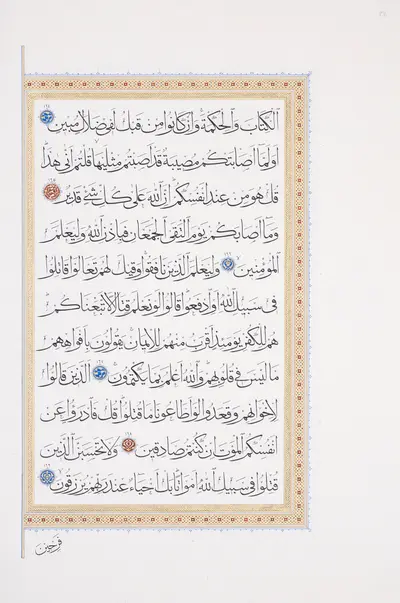 الكتاب والحكمة وإن كانوا من قبل لفي ضلال مبين
أولما أصابتكم مصيبة قد أصبتم مثليها قلتم أنى هذا
قل هو من عند أنفسكم إن الله على كل شيء قدير
وما أصابكم يوم التقى الجمعان فبإذن الله وليعلم
المؤمنين وليعلم الذين نافقوا وقيل لهم تعالوا قاتلوا
في سبيل الله أو ادفعوا قالوا لو نعلم قتالا لاتبعناكم
هم للكفر يومئذ أقرب منهم للإيمان يقولون بأفواههم
ما ليس في قلوبهم والله أعلم بما يكتمون الذين قالوا
لإخوانهم وقعدوا لو أطاعونا ما قتلوا قل فادرءوا عن
أنفسكم الموت إن كنتم صادقين ولا تحسبن الذين
قتلوا في سبيل الله أمواتا بل أحياء عند ربهم يرزقون
فرحين